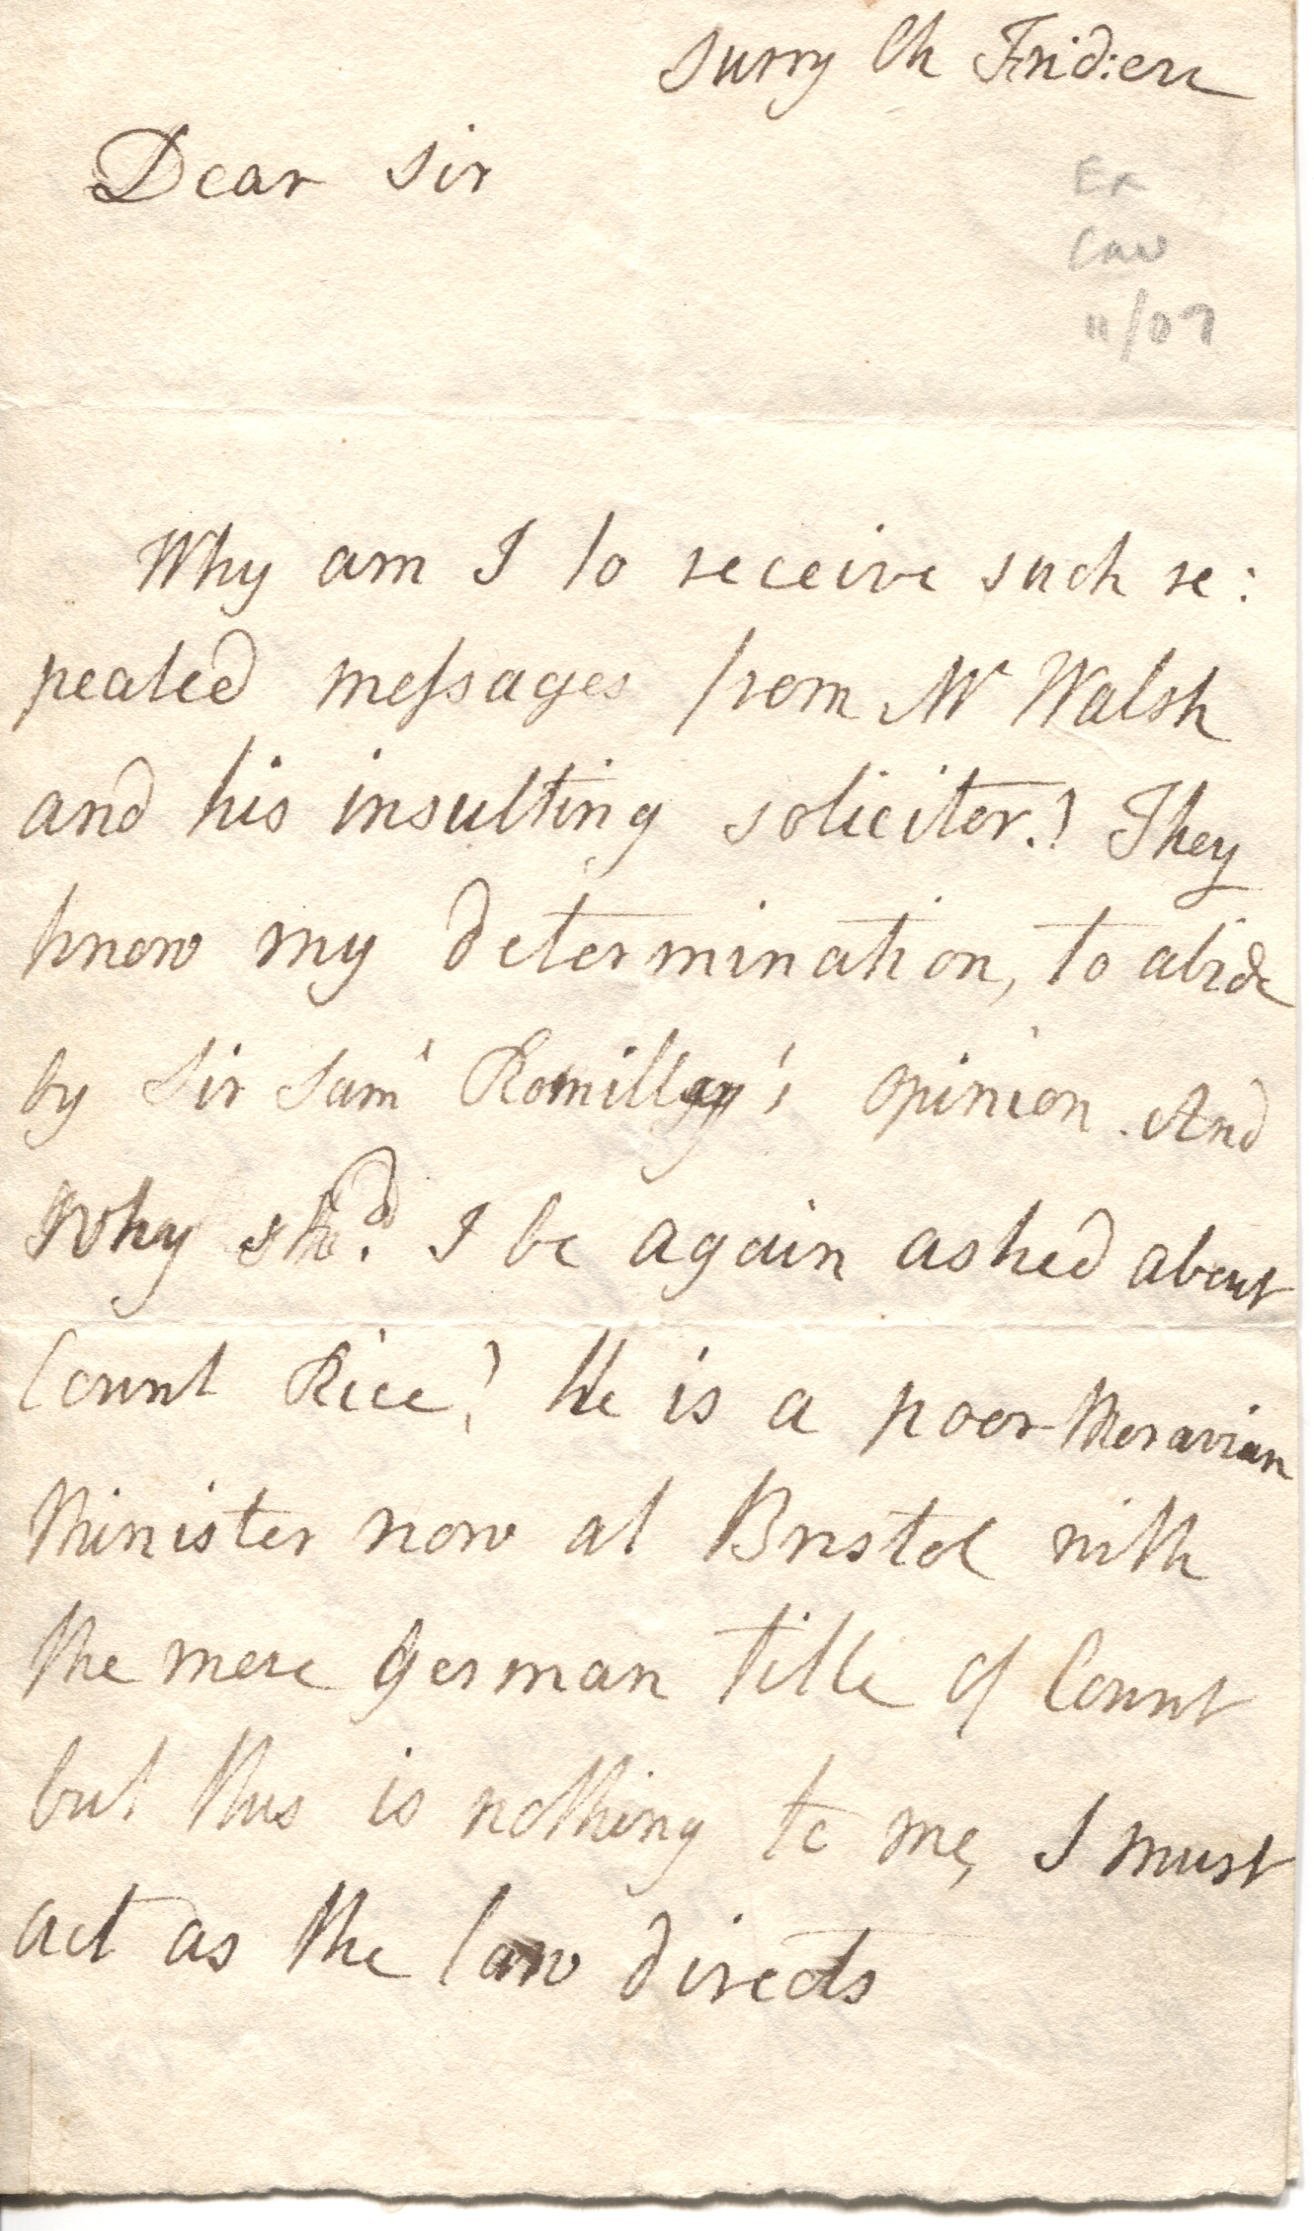 Surry Ch Frid: en
Dear Sir
Ex
Caw
11/07
Why am I to receive such re:
peated meſsages from Mr Walsh
and his insulting soliciter.? They
know my determination, to abide
by Sir Saml Romilly's opinion. And
why shd. I be again asked about
Count Rice? He is a poor Moravian
Minister now at Bristol with
the mere German title of Count
but this is nothing to me, I must
act as the law directs